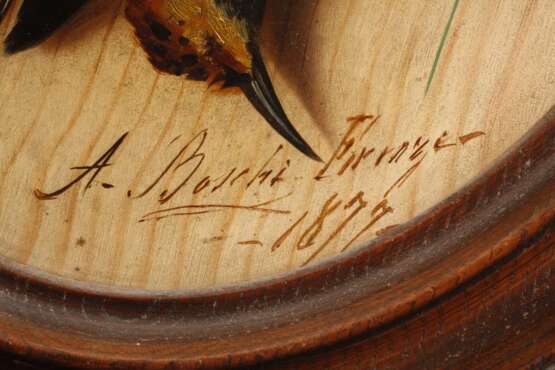 A. Boschi Firenze
1877